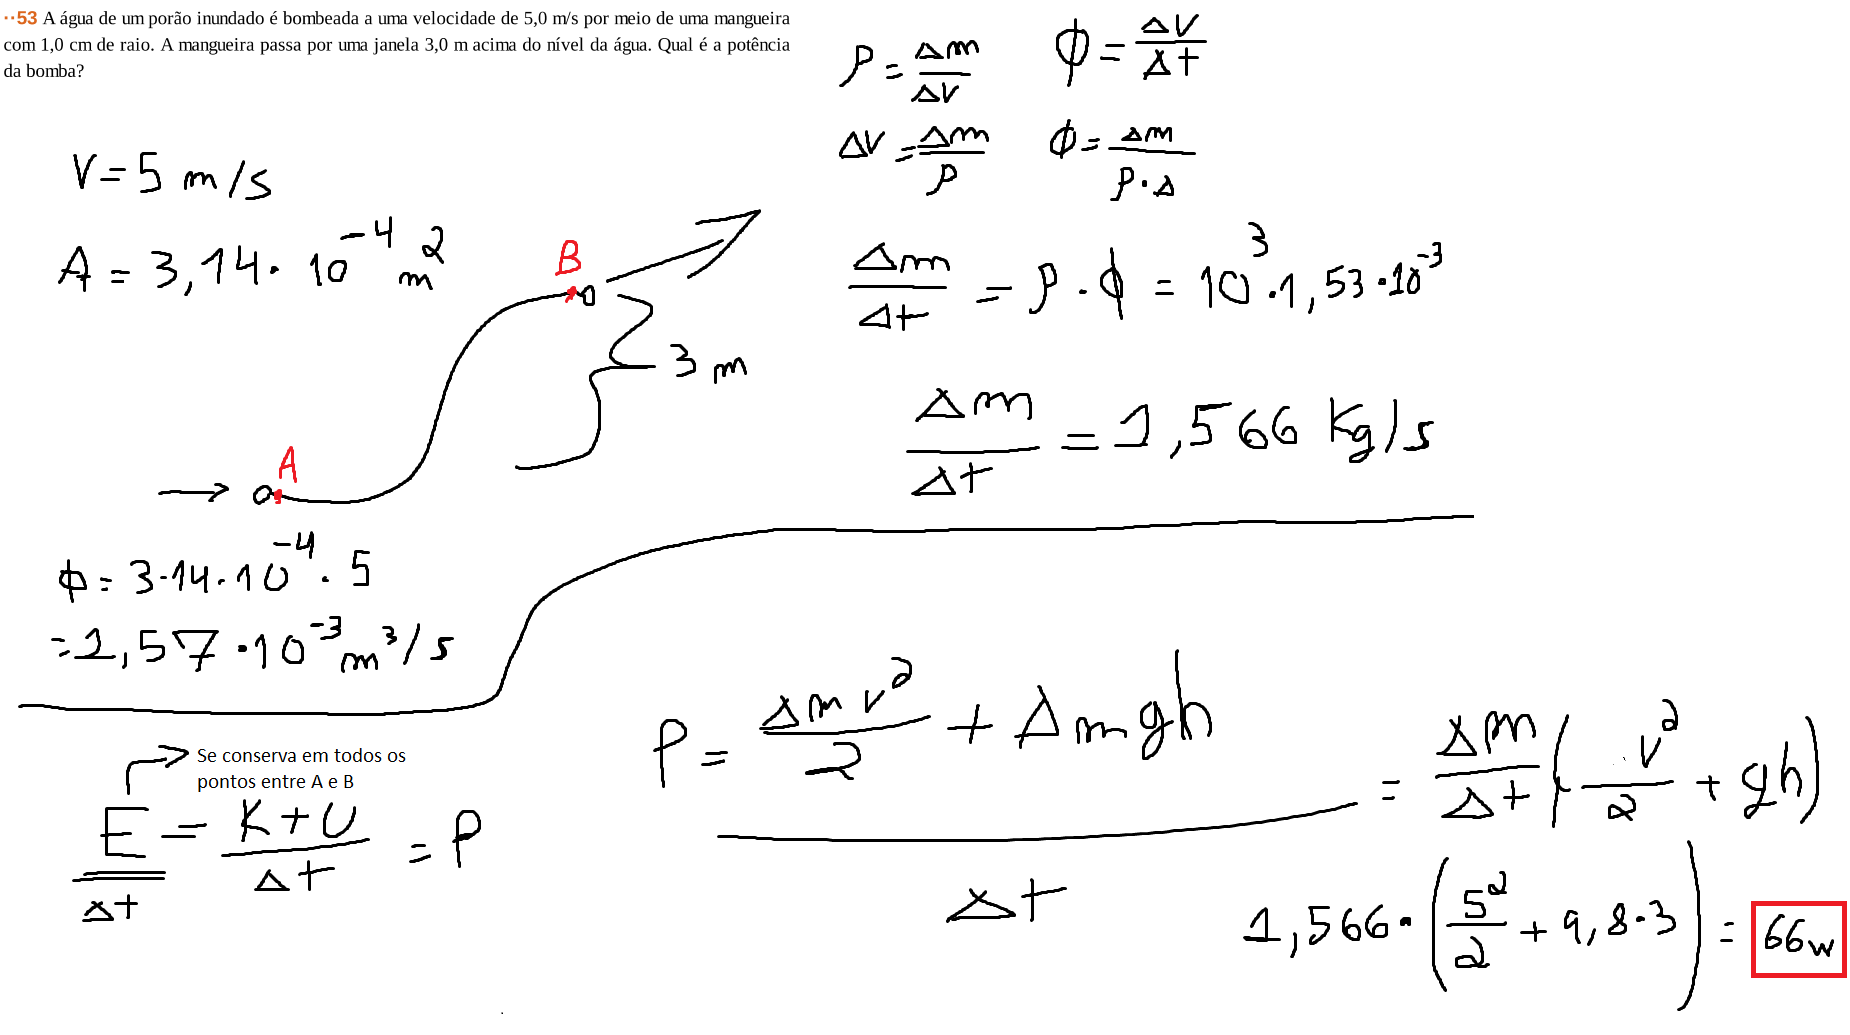 ··53 A água de um porão inundado é bombeada a uma velocidade de 5,0 m/s por meio de uma mangueira
com 1,0 cm de raio. A mangueira passa por uma janela 3,0 m acima do nível da água. Qual é a potência
da bomba?
V = 5 m/s
A = 3,14 · 10^-4 m^2
A
B
3 m
ϕ = 3·14·10^-4 · 5
= 1,57 · 10^-3 m^3/s
ρ = Δm/ΔV
ϕ = ΔV/Δt
ΔV = Δm/ρ
ϕ = Δm/ρ·Δ
Δm/Δt = ρ · ϕ = 10^3 · 1,53 · 10^-3
Δm/Δt = 1,566 Kg/s
Se conserva em todos os
pontos entre A e B
E/Δt = K+U/Δt = P
P = Δmv^2/2 + Δmgh / Δt = Δm/Δt (v^2/2 + gh)
1,566 · (5^2/2 + 9,8·3) = 66w